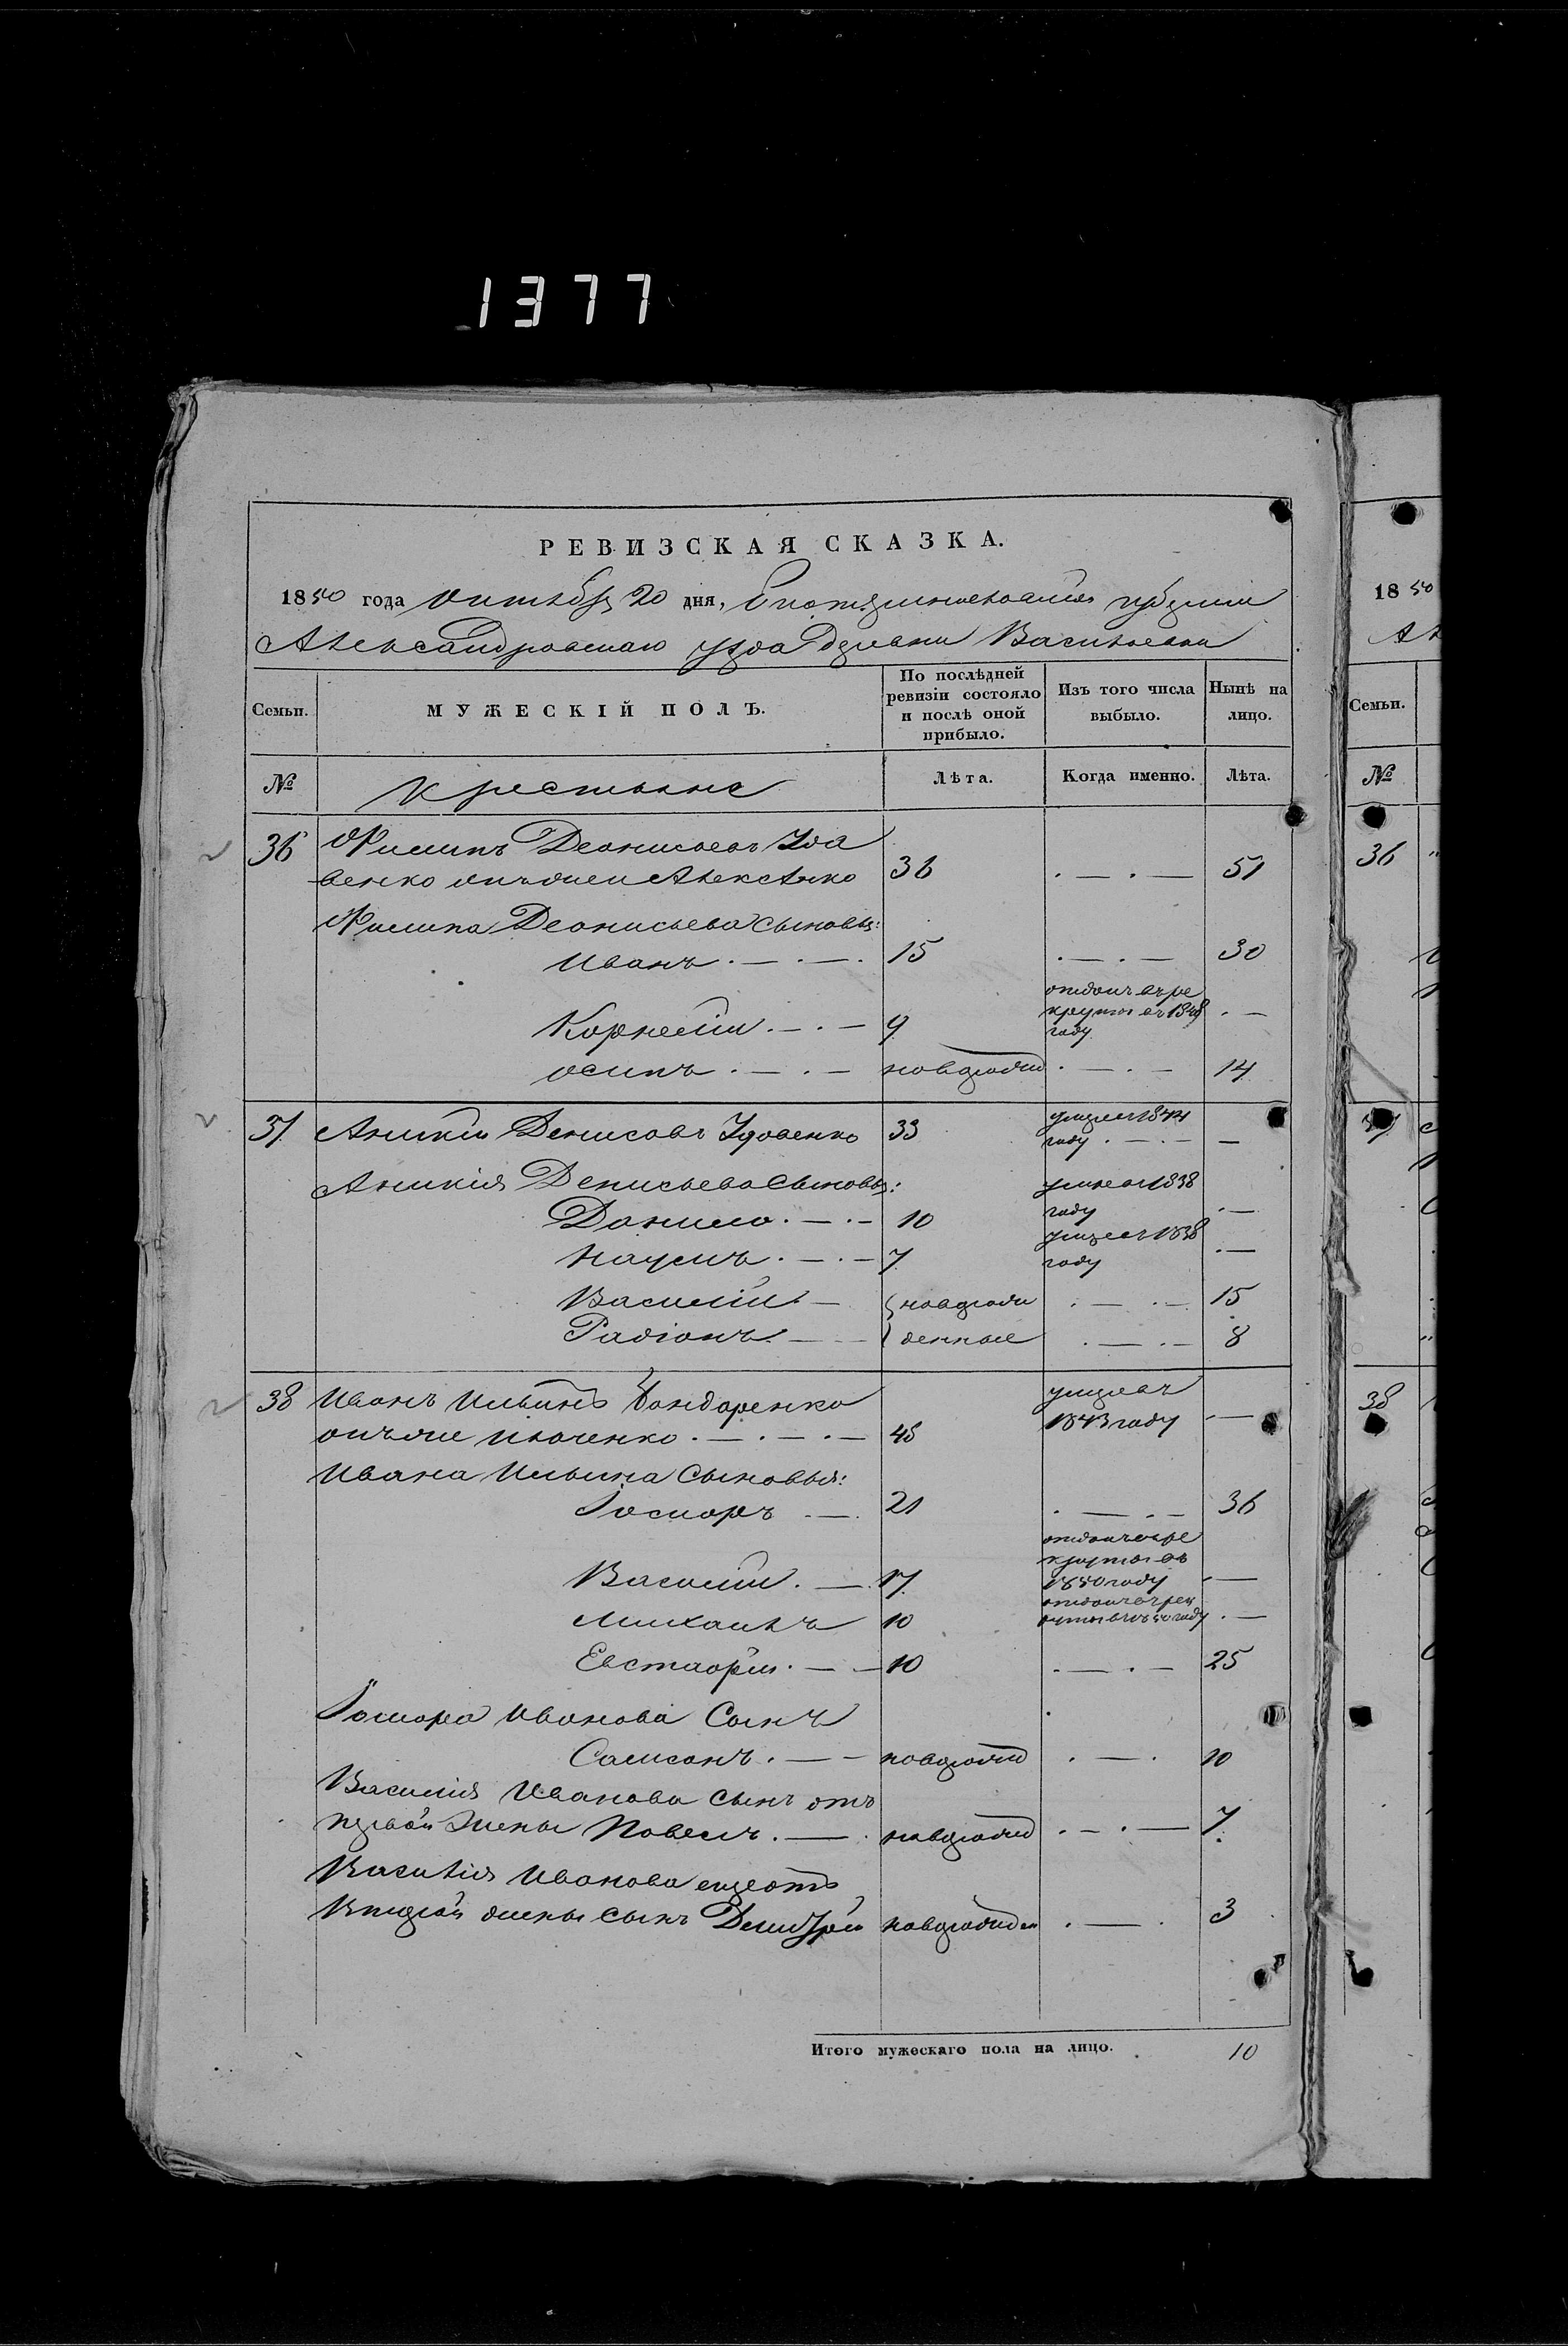 1377
РЕВИЗСКАЯ СКАЗКА.
1850 года Октября 20 дня, Екатеринославской губернии
Александровскаго уезда Деревни Васильевки
Семьи.
МУЖЕСКІЙ ПОЛЪ.
По послѣдней ревизіи состояло и послѣ оной прибыло.
Изъ того числа выбыло.
Нынѣ на лицо.
№
крестьяне
Лѣта.
Когда именно.
Лѣта.
36 Филипъ Деонисьевъ Удо
венко онъ же Алексенко 36 51
Филипа Деонисьева сыновья:
Иванъ 15 30
Корнелій 9 отданъ въ ре
круты въ 1848
году
осипъ новорожд 14
37 Аникій Денисовъ Удовенко 33 умеръ 1844
году
Аникія Денисьева сыновья:
Данило 10 умре 1838
году
Наумъ 7 умеръ 1838
году
Василій новорож 15
Радіонъ денные 8
38 Иванъ Ильинъ Бондаренко умеръ въ
онъ же Ильченко 45 1843 году
Ивана Ильина Сыновья:
21 36
Василій 17 отданъ въ ре
круты въ
1850 году
Михаилъ 10 отданъ въ рек
руты въ 1850 году
Евстафій 10 25
Иванова Сынъ
Самсонъ новорожд 10
Василія Иванова сынъ отъ
первой жены Павелъ новорожд 7
Василія Иванова еще отъ
второй жены сынъ Дмитрій новорожден 3
Итого мужескаго пола на лицо. 10
1850
Семьи.
№
36
37
38